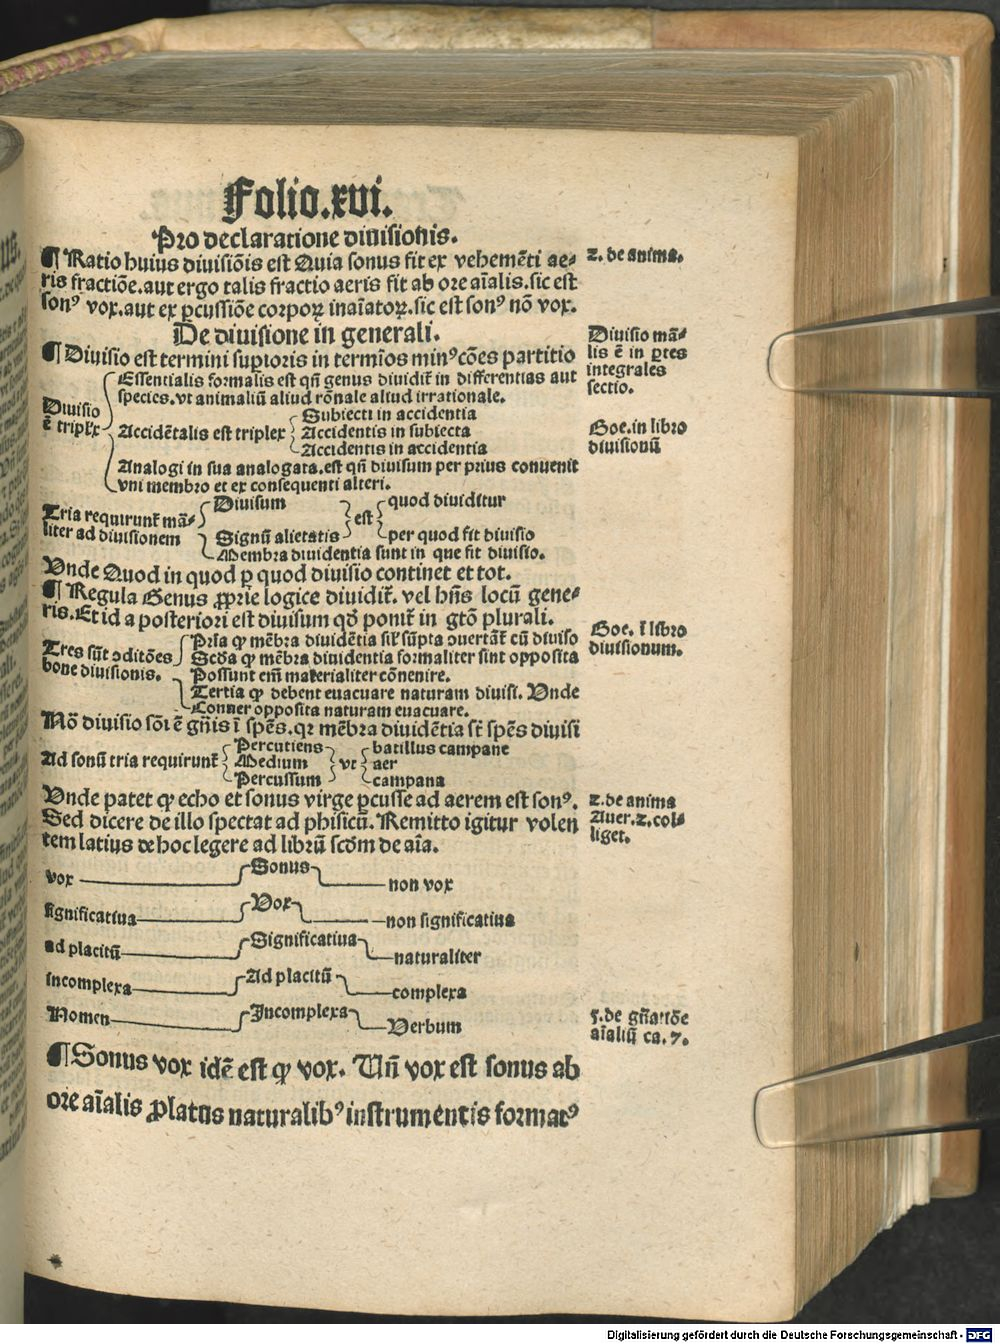 Folio.xvi.
Pro declaratione diuisionis.
¶ Ratio huius diuisiōis est Quia sonus fit ex vehemēti ae⸗
ris fractiōe.aut ergo talis fractio aeris fit ab ore aīalis.sic est
sonꝰ vox.aut ex ꝑcussiōe corpoꝝ inaīatoꝝ.sic est sonꝰ nō vox.
2. de anima.
De diuisione in generali.
¶ Diuisio est termini supıoris in termīos minꝰcōes partitio
Diuisio mā⸗
lis ē in ꝑtes
integrales
sectio.
Diuisio
ē triplex
Essentialis formalis est qn̄ genus diuidit̄ in differentias aut
species.vt animaliū aliud rōnale aliud irrationale.
Accidētalis est triplex
Subiecti in accidentia
Accidentis in subiecta
Accidentis in accidentia
Boe.in libro
diuisionū
Analogi in sua analogata.est qn̄ diuisum per prius conuenit
vni membro et ex consequenti alteri.
Tria requirunt̄ mā⸗
liter ad diuisionem
Diuisum
Signū alietatis
est
quod diuiditur
per quod fit diuisio
Membra diuidentia sunt in que fit diuisio.
Vnde Quod in quod ꝑ quod diuisio continet et tot.
¶ Regula Genus ꝓprie logice diuidit̄. vel hn̄s locū gene⸗
ris.Et id a posteriori est diuisum qd̄ ponit̄ in gtō plurali.
Boe. ī libro
diuisionum.
Tres sūt ɔditōes
bone diuisionis.
Prīa ꝙ mēbra diuidētia sil̄ sūpta ɔuertāt̄ cū diuiso
Scd̄a ꝙ mēbra diuidentia formaliter sint opposita
Possunt em̄ materialiter cōnenire.
Tertia ꝙ debent euacuare naturam diuisi. Vnde
Conner opposita naturam euacuare.
Nō diuisio sōı ē gn̄is ī spēs.qꝛ mēbra diuidētia st̄ spēs diuisi
Ad sonū tria requirunt̄
Percutiens
Medium
Percussum
vt
batillus campane
aer
campana
Vnde patet ꝙ echo et sonus virge ꝑcusse ad aerem est sonꝰ.
Sed dicere de illo spectat ad phisicū. Remitto igitur volen
tem latius de hoc legere ad librū scd̄m de aīa.
2.de anima
Auer.2.col⸗
liget.
Sonus
vox
non vox
Vox
significatiua
non significatiua
Significatiua
ad placitū
naturaliter
Ad placitū
incomplexa
complexa
Incomplexa
Nomen
Verbum
5.de gn̄atiōe
aīaliū ca. 7.
¶ Sonus vox idē est ꝙ vox. Vn̄ vox est sonus ab
ore aīalis ꝓlatus naturalibꝰ instrumentis formatꝰ
Digitalisierung gefördert durch die Deutsche Forschungsgemeinschaft - DFG